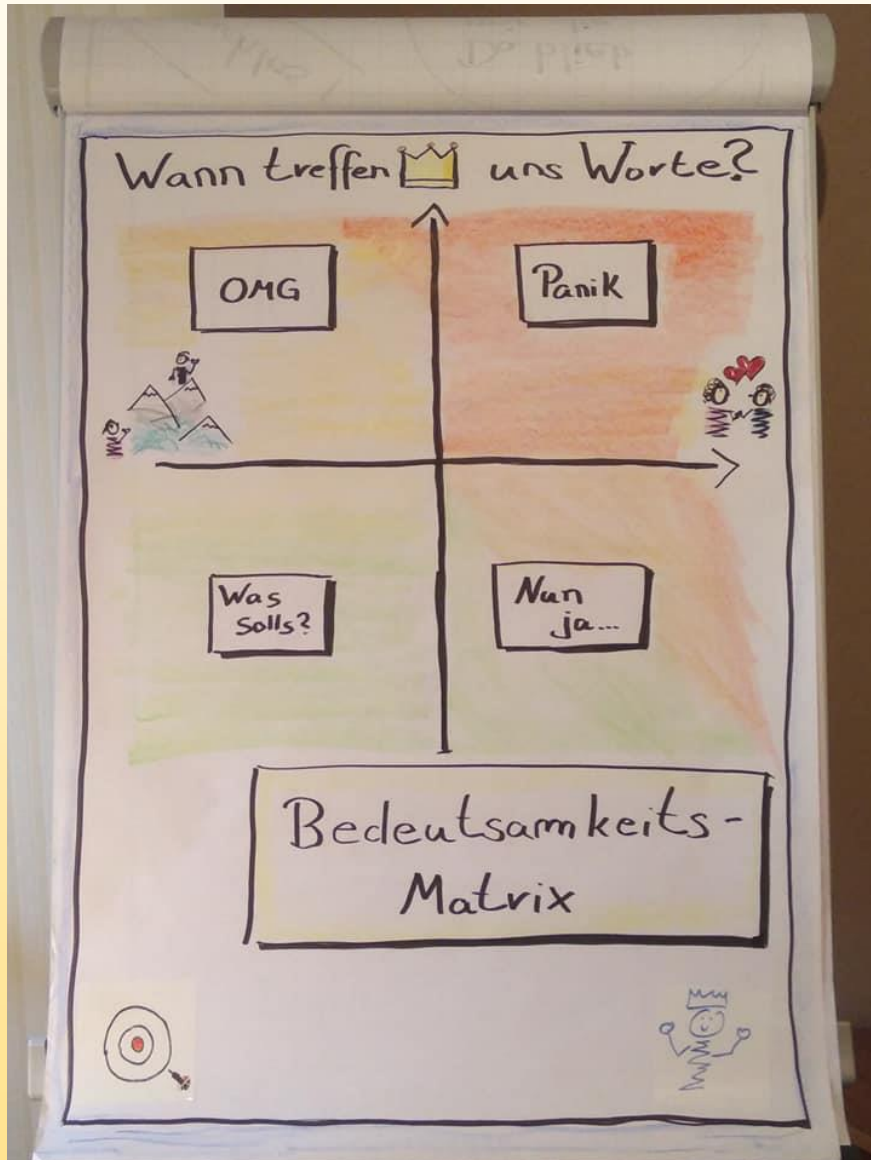 Wann treffen uns Worte?
OMG
Panik
Was
solls?
Nun
ja...
Bedeutsamkeits-
Matrix